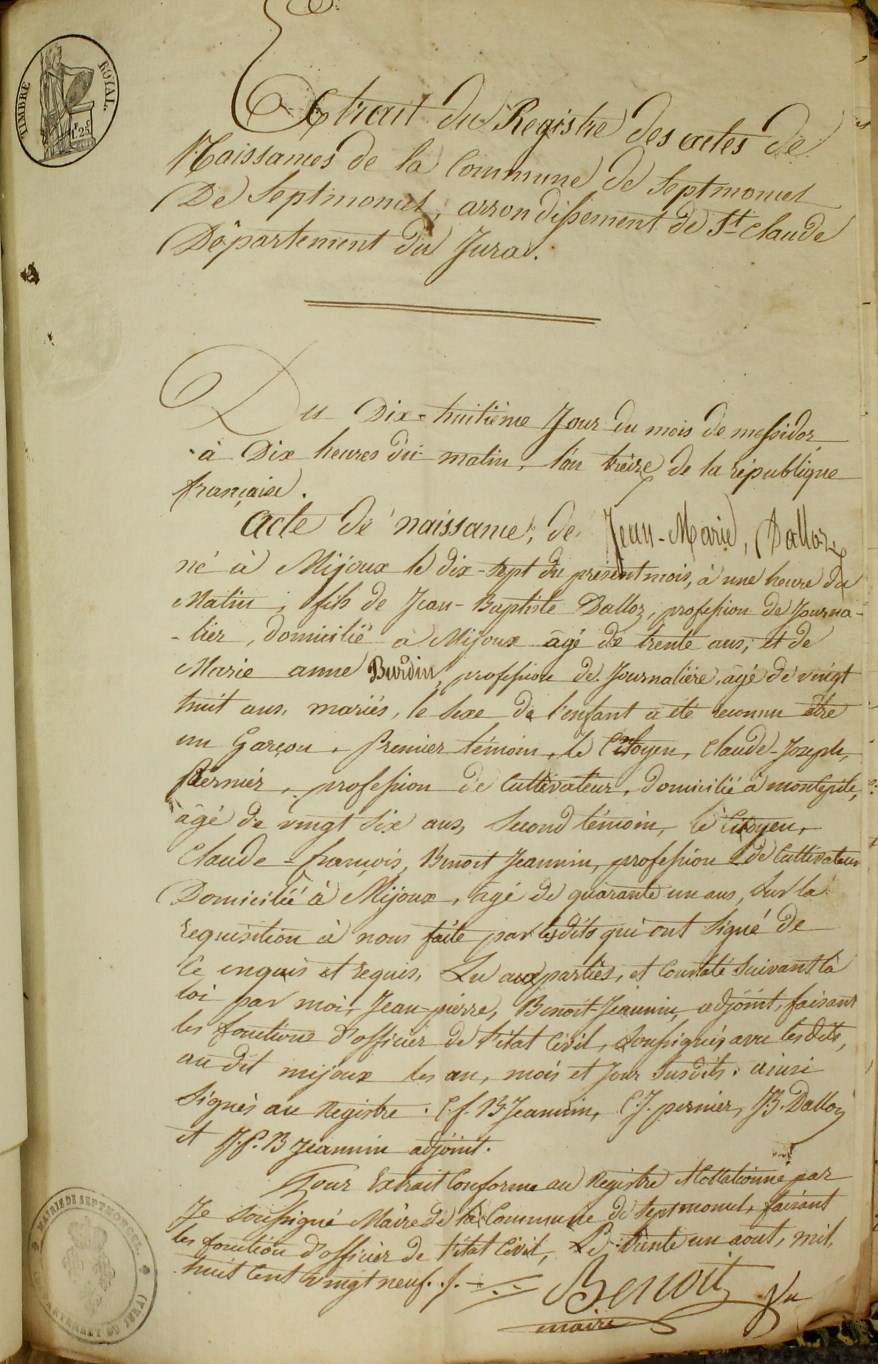 TIMBRE ROYAL.
1f 25c
Extrait du Registre des actes de
Naissances de la Commune de Septmoncel
De Septmoncel, arrondissement de St Claude
Département du Jura.
Du Dix-huitième Jour du mois de messidor
à Dix heures du matin, l'an treize de la république
française.
Acte de naissance, de Jean-Marie, Dalloz
né à Mijoux le dix-sept du présent mois, à une heure du
Matin, fils de Jean-Baptiste Dalloz, profession de Journa-
-lier, domicilié à Mijoux âgé de trente ans, et de
Marie anne Burdin, profession de Journalière, âgé de vingt
huit ans, mariés, le sexe de l'enfant a été reconnu être
un Garçon, Premier témoin, le Citoyen, Claude-Joseph,
Pernier, profession de Cultivateur, domicilié à montépile,
âgé de vingt six ans, Second témoin, le Citoyen,
Claude-françois, Benoit Jeannin, profession de Cultivateur
Domicilié à Mijoux, âgé de quarante un ans, Sur la
requisition à nous faite par lesdits qui ont signé de
ce enquis et requis, Lu aux parties, et Constaté suivant la
loi par moi, Jean-pierre, Benoit-Jeannin, adjoint, faisant
les fonctions d'officier de l'état Civil, soussignés avec lesdits,
au dit mijoux les an, mois et Jour susdits. ainsi
Signés au Registre. C.f. B Jeannin, C.J. pernier, JB. Dalloz
et J.P. B Jeannin adjoint.
Pour Extrait Conforme au Registre et Collationné par
Je soussigné Maire de la Commune de Septmoncel, faisant
les fonction d'officier de l'état Civil, Le trente un aout, mil
huit Cent vingt neuf.
Benoit
maire
Vu
MAIRIE DE SEPTMONCEL
DEPARTEMENT DU JURA